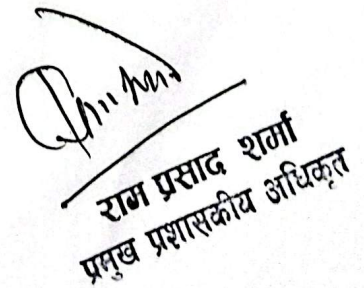 राम प्रसाद शर्मा
प्रमुख प्रशासकीय अधिकृत